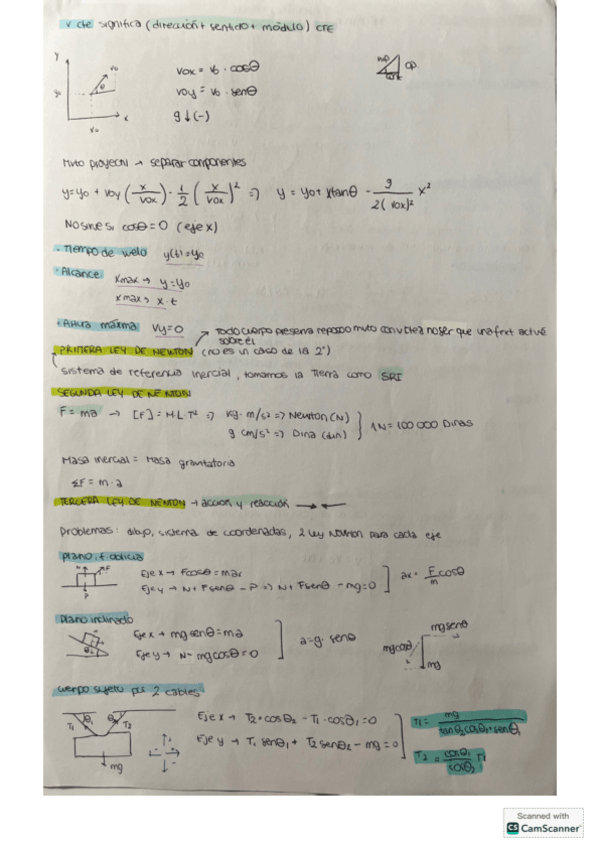 v cte significa (dirección + sentido + módulo) CTE
y
vo
θ
yo
xo
x
vox = vo · cosθ
voy = vo · senθ
g ↓ (-)
op
Mvto proyectil → separar componentes
y = yo + voy (x/vox) · 1/2 (x/vox)² => y = yo + xtanθ - g/2(vox)² x²
No sirve si cosθ = 0 (eje x)
· Tiempo de vuelo y(t) = yo
· Alcance: xmax → y = yo
xmax > x · t
· Altura máxima: Vy = 0
Todo cuerpo preserva reposo mvto con v cte a no ser que una fext actue
sobre él
PRIMERA LEY DE NEWTON (no es un caso de la 2ª)
sistema de referencia inercial, tomamos la Tierra como SRI
SEGUNDA LEY DE NEWTON
F = ma → [F] = M·L·T² => kg · m/s² => Newton (N)
g cm/s² => Dina (din)
1N = 100 000 Dinas
Masa inercial = Masa gravitatoria
ΣF = m · a
TERCERA LEY DE NEWTON → acción y reacción → ←
Problemas: dibujo, sistema de coordenadas, 2 ley Newton para cada eje
plano: f. oblicua
N
F
P
Eje x → Fcosθ = max
Eje y → N + Fsenθ - P => N + Fsenθ - mg = 0
ax = F/m cosθ
Plano inclinado
Eje x → mg senθ = ma
Eje y → N - mg cosθ = 0
a = g · senθ
mg senθ
mg cosθ
mg
cuerpo sujeto por 2 cables
T1
θ1
θ2
T2
mg
Eje x → T2 · cosθ2 - T1 · cosθ1 = 0
Eje y → T1 senθ1 + T2 senθ2 - mg = 0
T1 = mg/tanθ2 cosθ1 + senθ1
T2 = cosθ1/cosθ2 T1
Scanned with
CS CamScanner